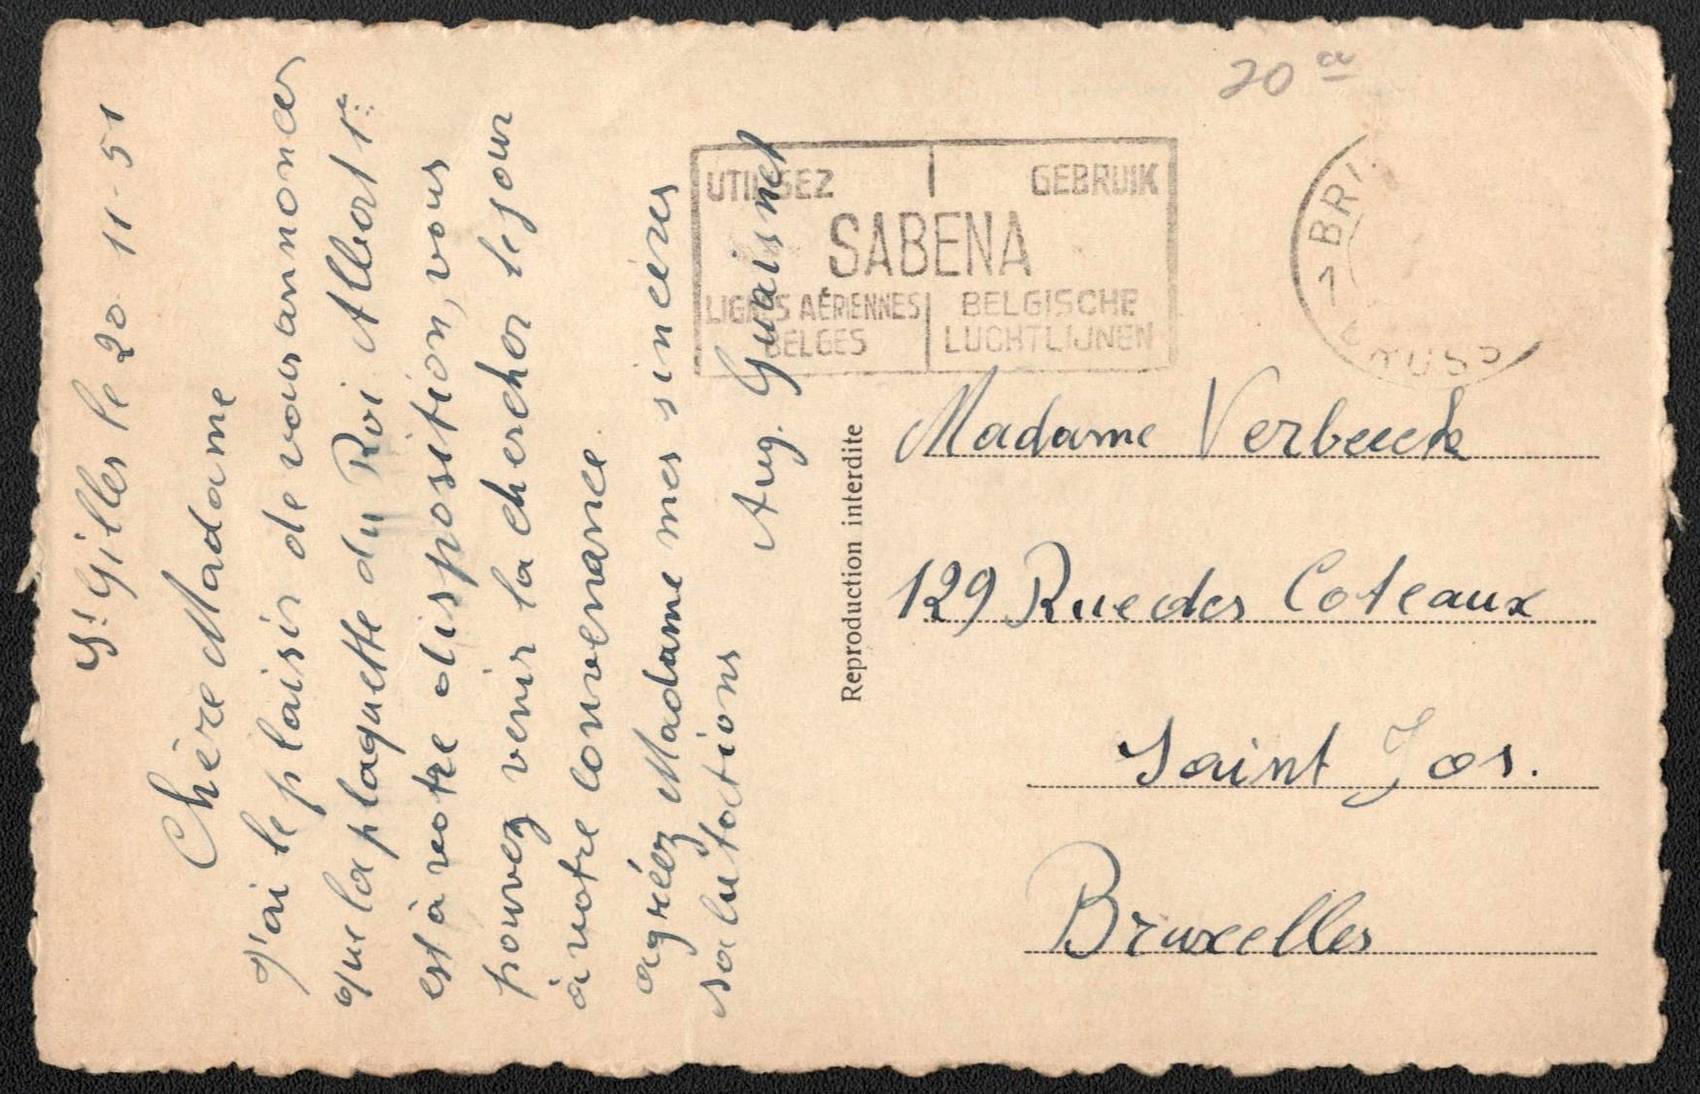 St Gilles le 20 11-51
Chère Madame
J'ai le plaisir de vous annoncer
que la plaquette du Roi Albert 1er
est à votre disposition, vous
pouvez venir la chercher le jour
à votre convenance.
agréez Madame mes sincères
salutations
Aug. Guaisnet
Reproduction interdite
20
UTILISEZ GEBRUIK
SABENA
LIGNES AÉRIENNES BELGISCHE
BELGES LUCHTLIJNEN
1 BRU
BRUSS
Madame Verbeeck
129 Rue des Coteaux
Saint Jos.
Bruxelles